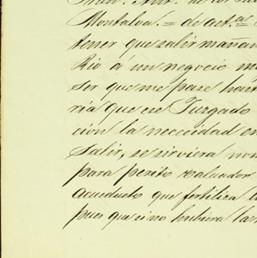 Montalva. = de act.
tener que salir mañan
Rio á un negocio
ser que me pare
ria que ese Juzgado
cion la necesidad en
Salir, se sirviera nom
para perito valuador
acueducto que fertiliza
pues que si no hubiera